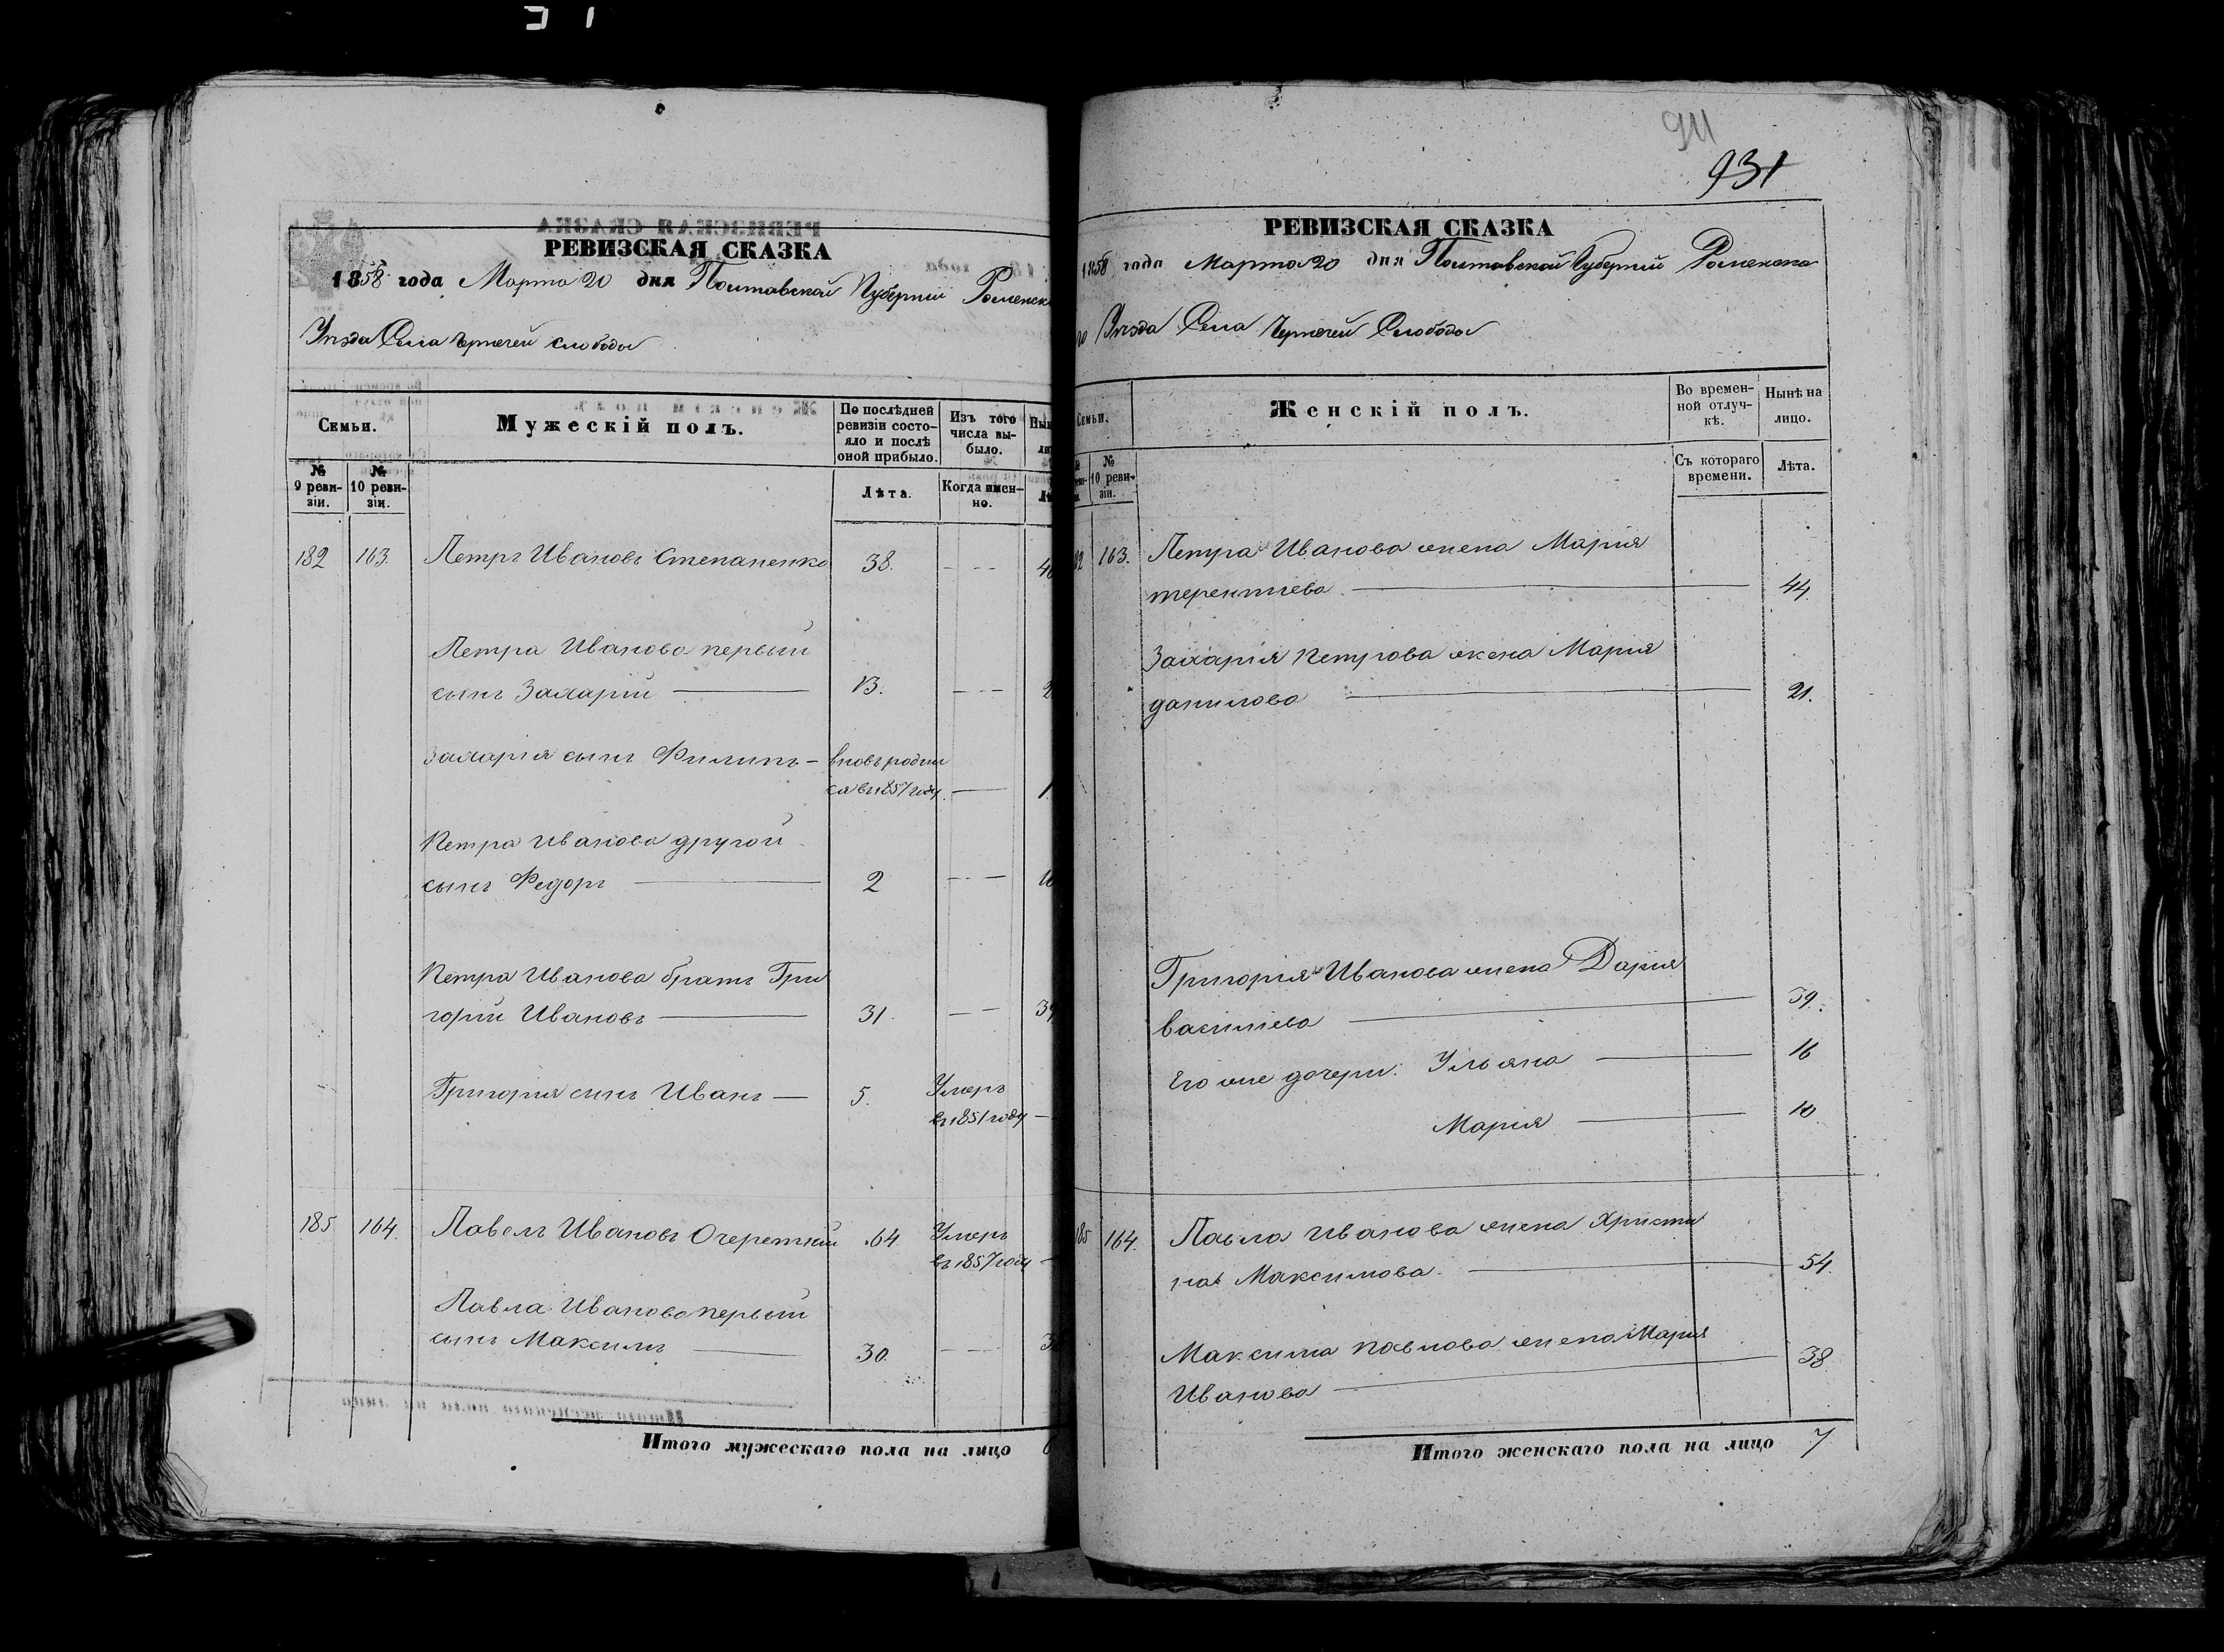 911
931
РЕВИЗСКАЯ СКАЗКА
1858 года Марта 20 дня Полтавской Губернии Роменска
Уезда Села Чернечей слободы
Семьи.
Мужескій полъ.
По послѣдней ревизіи состояло и послѣ оной прибыло.
Изъ того числа выбыло.
№ 9 ревизіи.
№ 10 ревизіи.
Лѣта.
Когда именно.
182 163. Петръ Ивановъ Степаненко 38.
Петра Иванова первый
сынъ Захарій 13.
Захарія сынъ Филипъ - вновь родил
ся въ 1857 году. 1.
Петра Иванова другой
сынъ Федоръ 2 10
Петра Иванова братъ Гри
горій Ивановъ 31. 39
Григорія сынъ Иванъ 5. Умеръ
въ 1851 году
185 164. Павелъ Ивановъ Очереткій 64. Умеръ
въ 1857 году
Павла Иванова первый
сынъ Максимъ 30.
Итого мужескаго пола на лицо 6
РЕВИЗСКАЯ СКАЗКА
1858 года Марта 20 дня Полтавской Губерніи Роменска
го Уезда Села Чернечей Слободы
Семьи.
Женскій полъ.
Во временной отлучкѣ.
Нынѣ на лицо.
№ 10 ревизіи.
Съ котораго времени.
Лѣта.
163. Петра Иванова жена Марія
терентиева 44.
Захарія Петрова жена Марія
данилова 21.
Григорія Иванова жена Дарія
василиева 39.
Его же дочери: Ульяна 16
Марія 10.
185 164. Павла Иванова жена Христи
на Максимова 54.
Максима Павлова жена Марія
Иванова 38
Итого женскаго пола на лицо 7